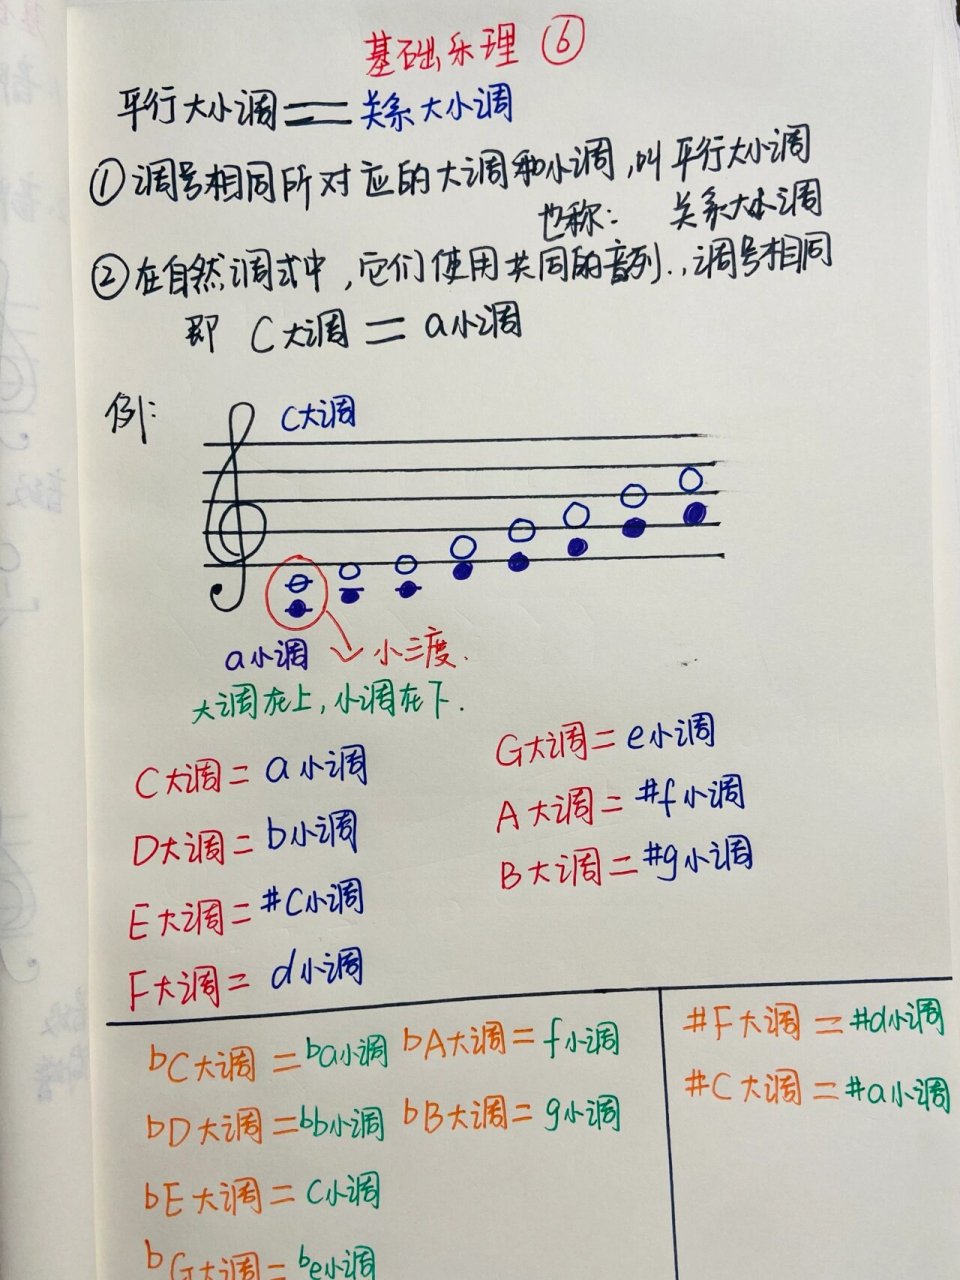 基础乐理 ⑥
平行大小调 = 关系大小调
① 调号相同所对应的大调和小调,叫平行大小调
也称: 关系大小调
② 在自然调式中,它们使用共同的音列.,调号相同
即 C大调 = a小调
例:
C大调
a小调
小三度.
大调在上,小调在下.
C大调 = a小调
D大调 = b小调
E大调 = #C小调
F大调 = d小调
G大调 = e小调
A大调 = #f小调
B大调 = #g小调
bC大调 = ba小调
bD大调 = bb小调
bE大调 = C小调
bG大调 = be小调
bA大调 = f小调
bB大调 = g小调
#F大调 = #d小调
#C大调 = #a小调